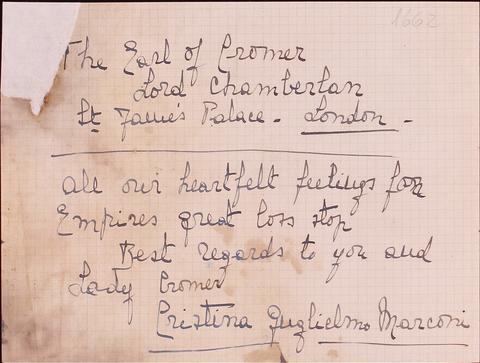 1662
The Earl of Cromer
Lord Chamberlan
St James's Palace - London -
all our heartfelt feelings for
Empires great loss stop
Best regards to you and
Lady Cromer
Cristina Guglielmo Marconi